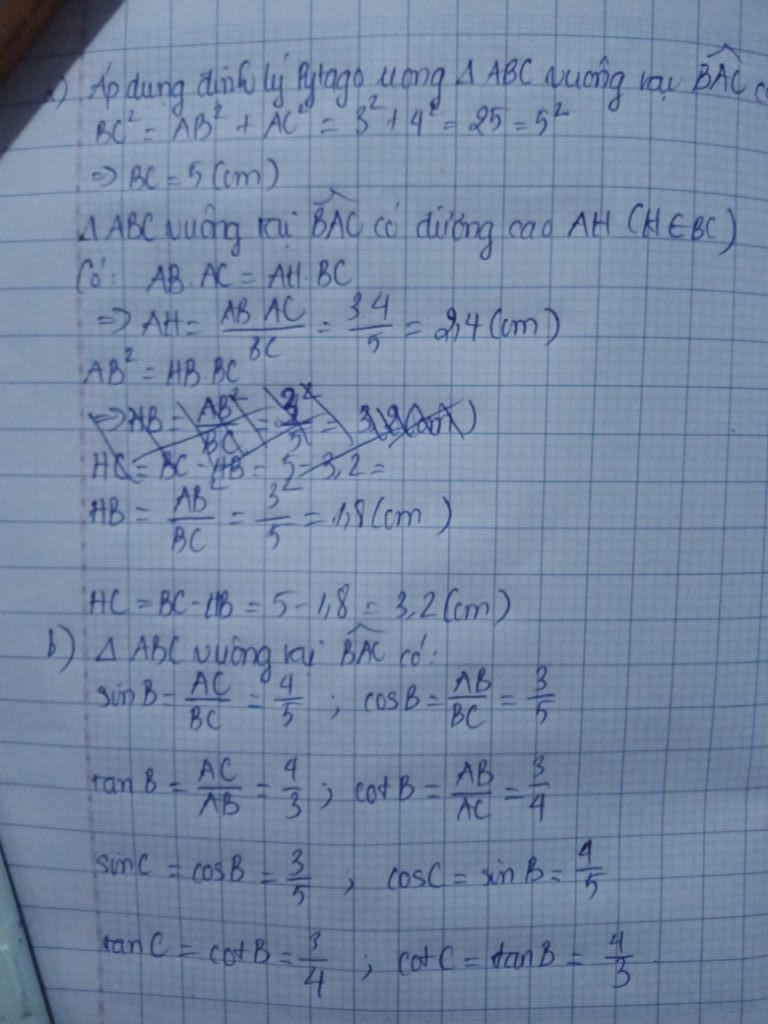 a) Áp dụng định lý Pytago trong Δ ABC vuông tại $\widehat{BAC}$ c
BC² = AB² + AC² = 3² + 4² = 25 = 5²
=> BC = 5 (cm)
Δ ABC vuông tại $\widehat{BAC}$ có đường cao AH (H ∈ BC)
Có: AB.AC = AH.BC
=> AH = \frac{AB.AC}{BC} = \frac{3.4}{5} = 2,4 (cm)
AB² = HB.BC
=> HB = \frac{AB²}{BC} = \frac{3²}{5} = 3,2 (cm)
HC = BC - HB = 5 - 3,2 =
HB = \frac{AB²}{BC} = \frac{3²}{5} = 1,8 (cm)
HC = BC - HB = 5 - 1,8 = 3,2 (cm)
b) Δ ABC vuông tại $\widehat{BAC}$ có:
sin B = \frac{AC}{BC} = \frac{4}{5} ; cos B = \frac{AB}{BC} = \frac{3}{5}
tan B = \frac{AC}{AB} = \frac{4}{3} ; cot B = \frac{AB}{AC} = \frac{3}{4}
sin C = cos B = \frac{3}{5} ; cos C = sin B = \frac{4}{5}
tan C = cot B = \frac{3}{4} ; cot C = tan B = \frac{4}{3}